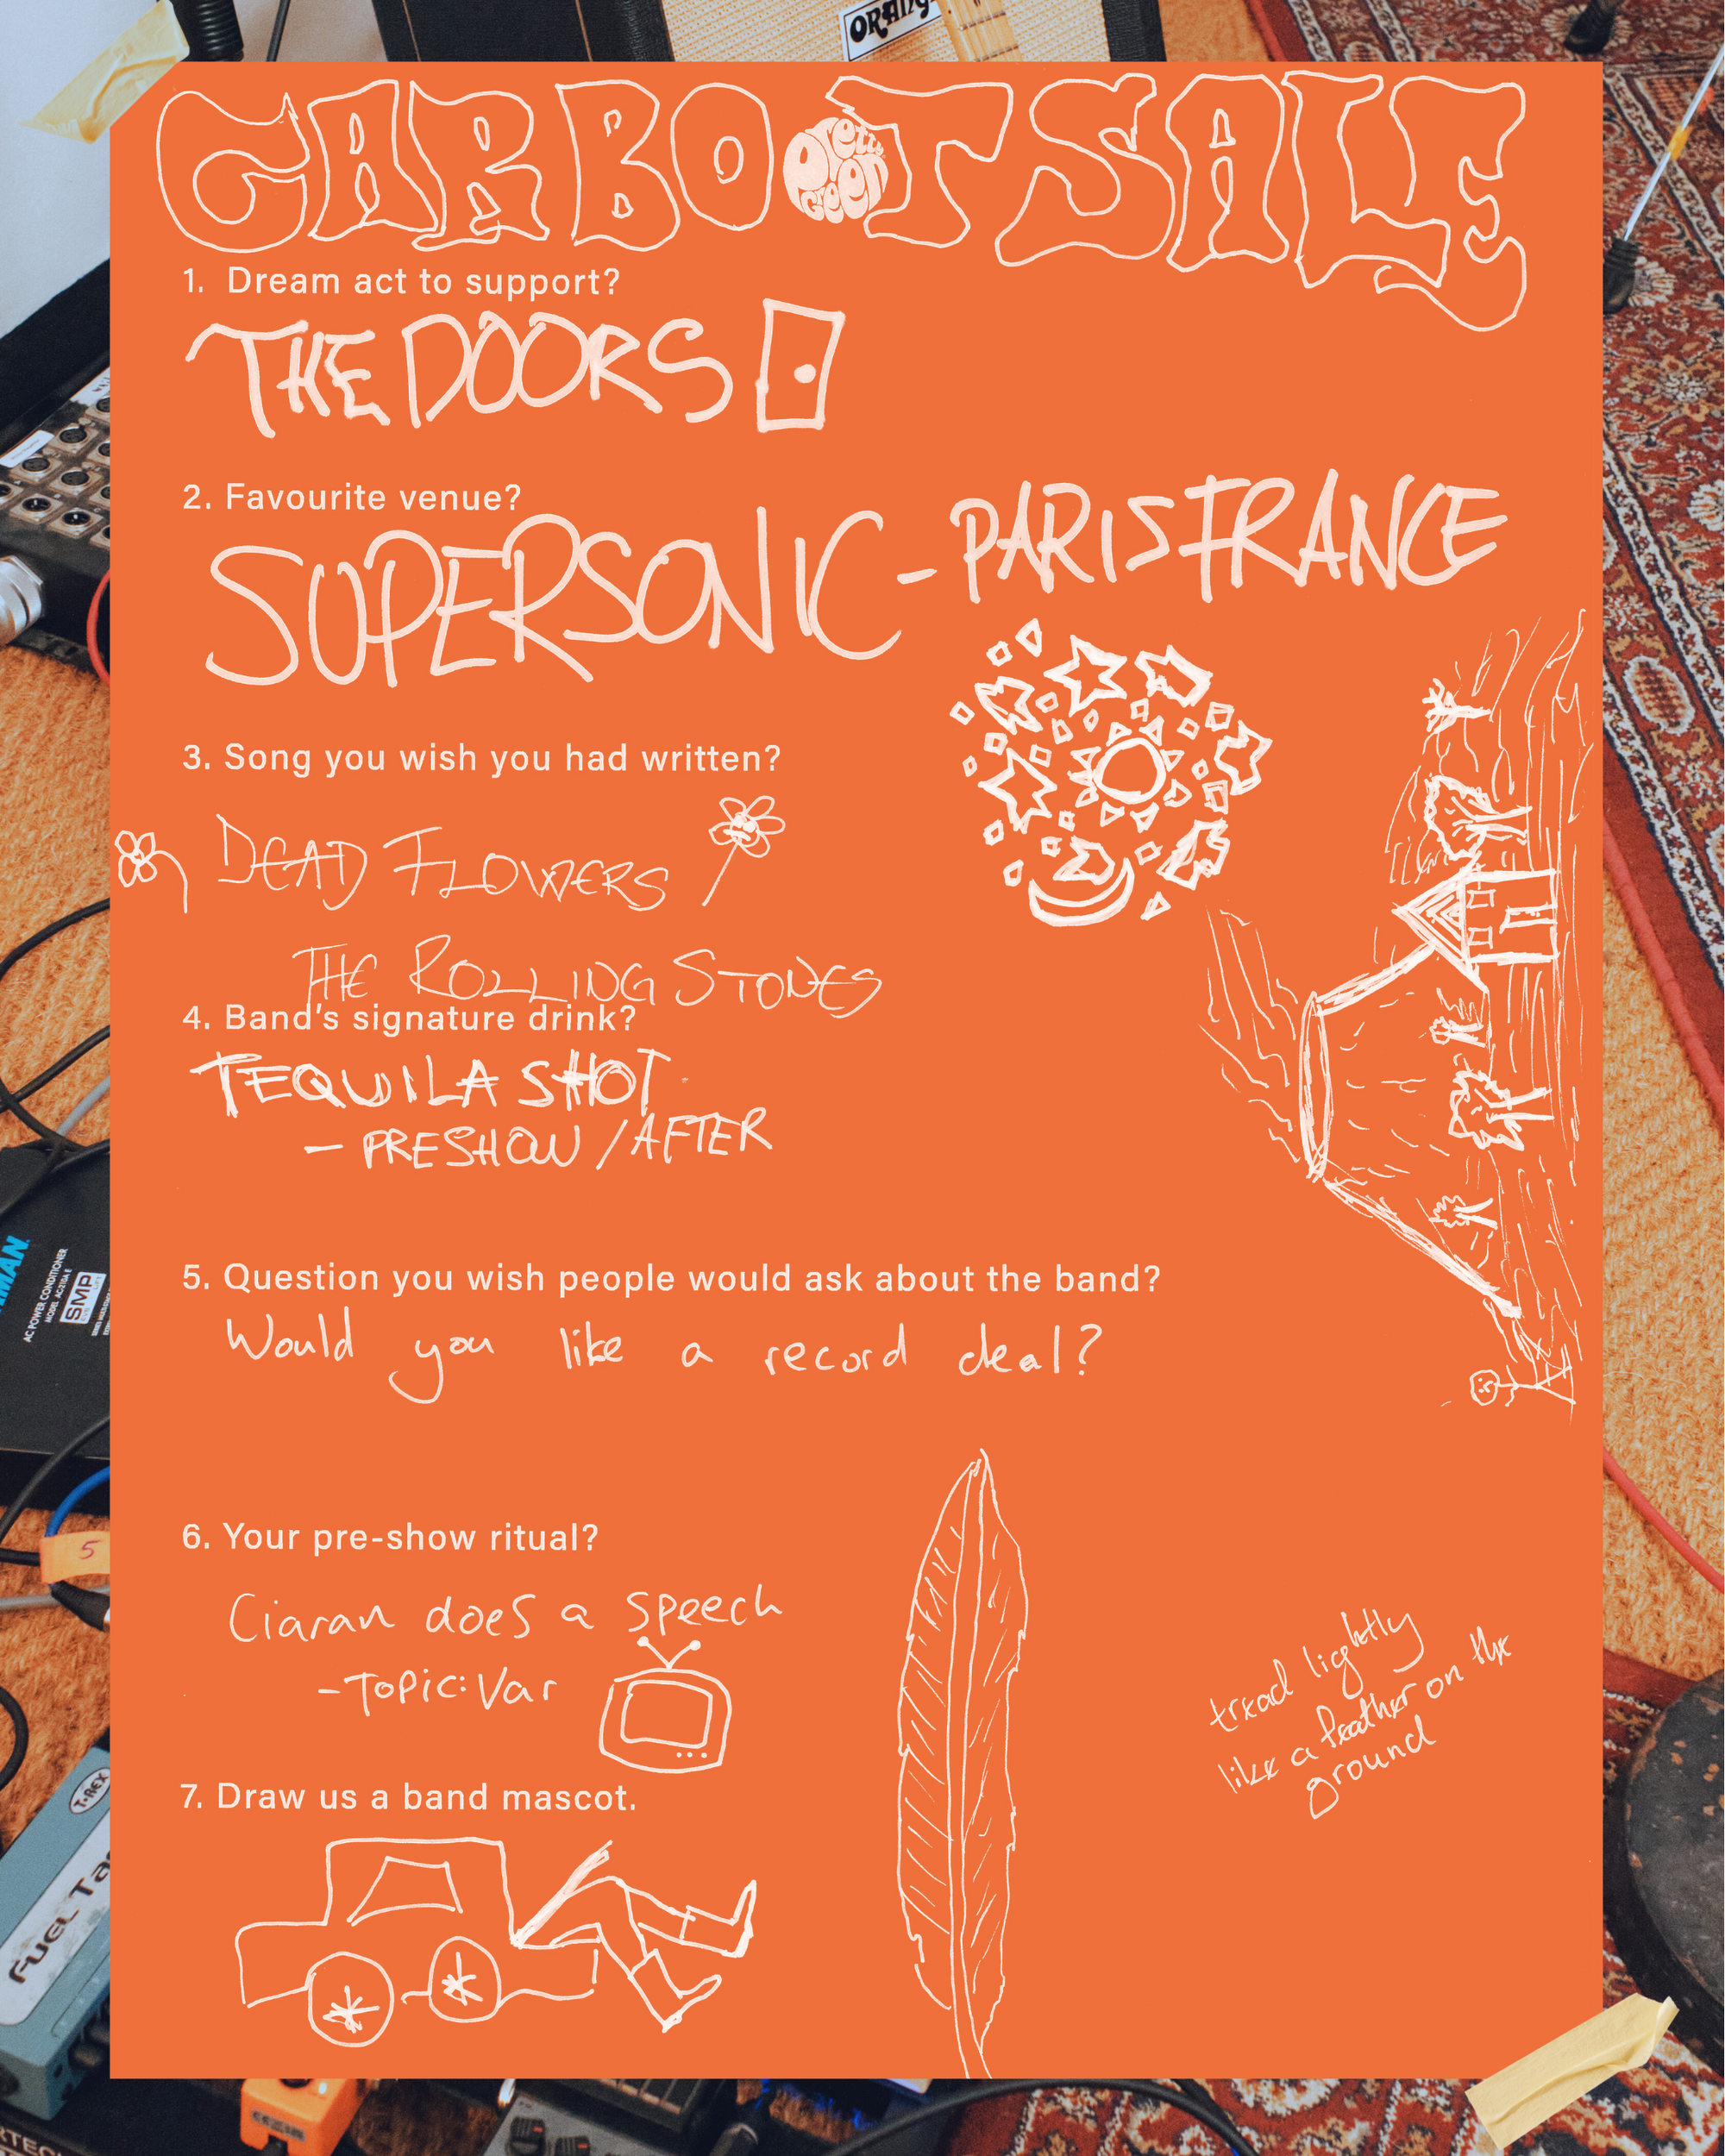 ORANG
CARBOOT SALE
Pretty Green
1. Dream act to support?
THE DOORS
2. Favourite venue?
SUPERSONIC - PARIS FRANCE
3. Song you wish you had written?
DEAD FLOWERS
THE ROLLING STONES
4. Band's signature drink?
TEQUILA SHOT
- PRESHOW / AFTER
5. Question you wish people would ask about the band?
Would you like a record deal?
6. Your pre-show ritual?
Ciaran does a speech
- Topic: Var
tread lightly
like a feather on the
ground
7. Draw us a band mascot.
AC POWER CONDITIONER
SMP
5
T-REX
FUEL TA